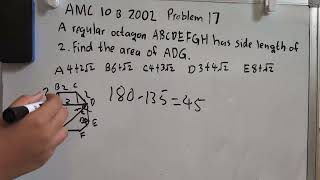 AMC 10 B 2002 Problem 17
A regular octagon ABCDEFGH has side length of
2. Find the area of ADG.
A 4+2√2 B 6+√2 C 4+3√2 D 3+4√2 E 8+√2
B 2 C
2 D
E
F
180-135=45